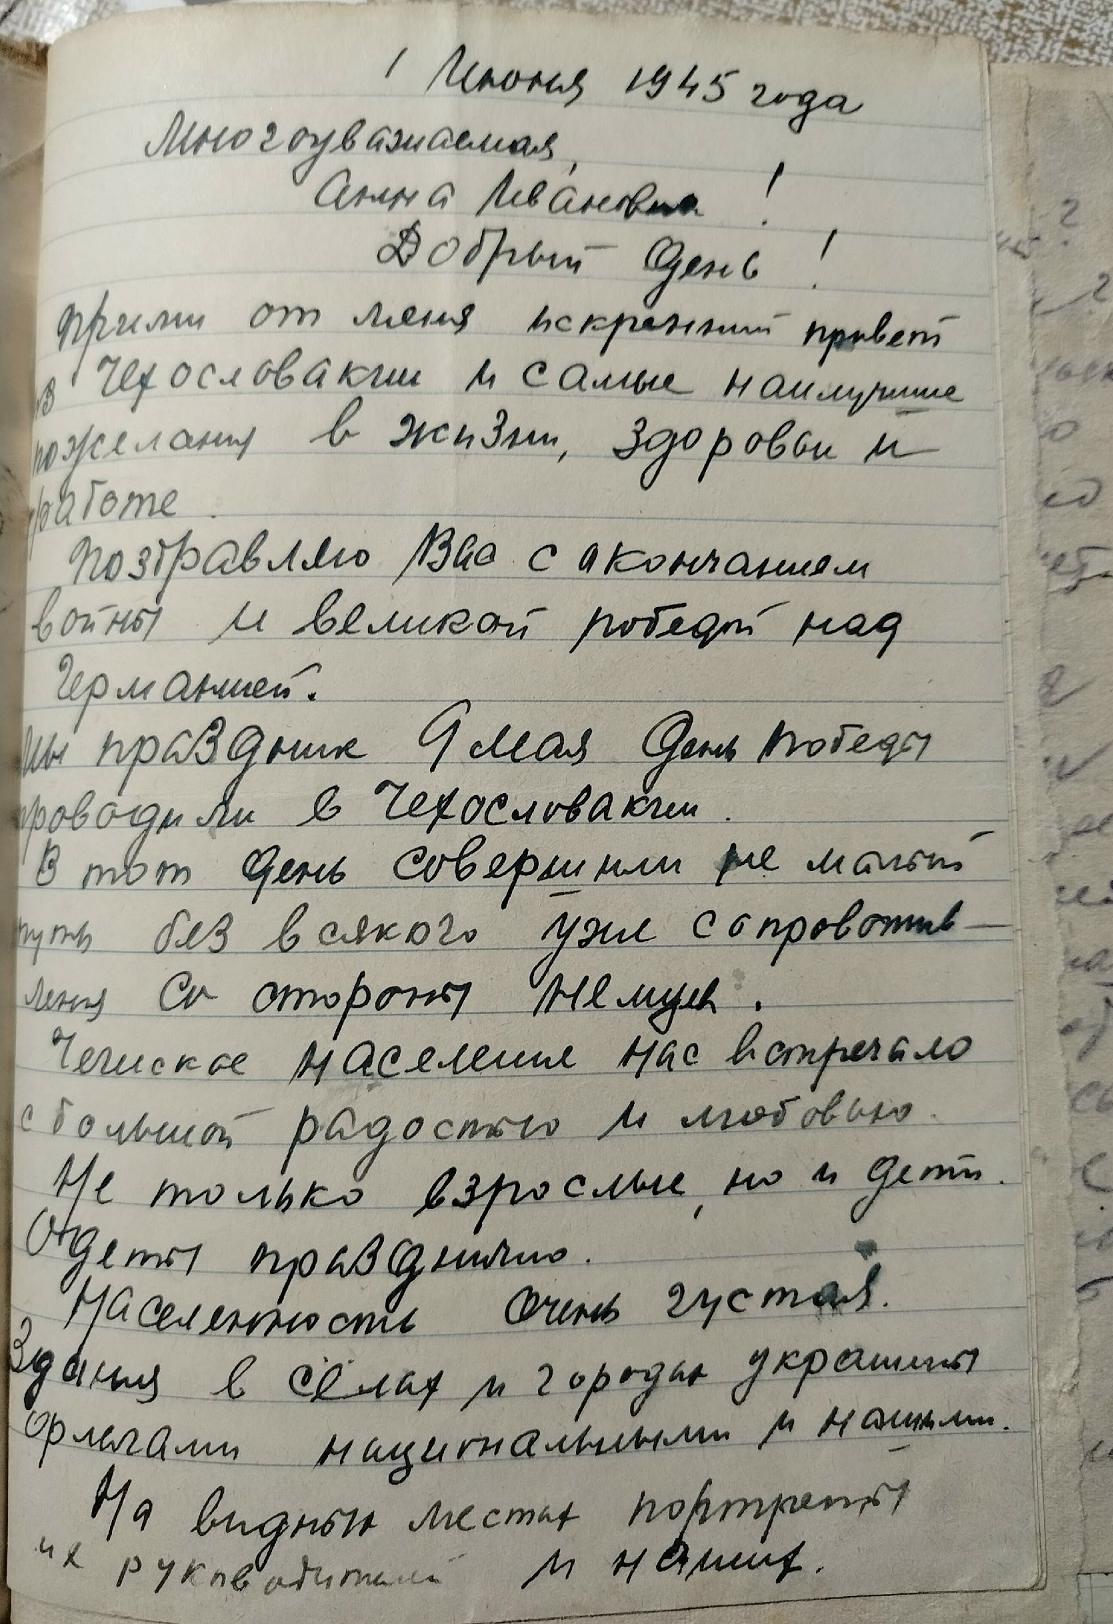 1 Июня 1945 года
Многоуважаемая,
Анна Ивановна !
Добрый день !
Прими от меня искренний привет
из Чехословакии и самые наилучшие
пожелания в жизни, здоровьи и
работе.
Поздравляю Вас с окончанием
войны и великой победой над
Германией.
Мы праздник 9 мая День Победы
проводили в Чехословакии.
В тот день совершили не малый
путь без всякого уже сопротив-
ления со стороны немцев.
Чешское население нас встречало
с большой радостью и любовью.
Не только взрослые, но и дети.
Одеты празднично.
Населенность очень густая.
Здания в сёлах и городах украшены
флагами национальными и нашими.
На видных местах портреты
их руководителей и наших.